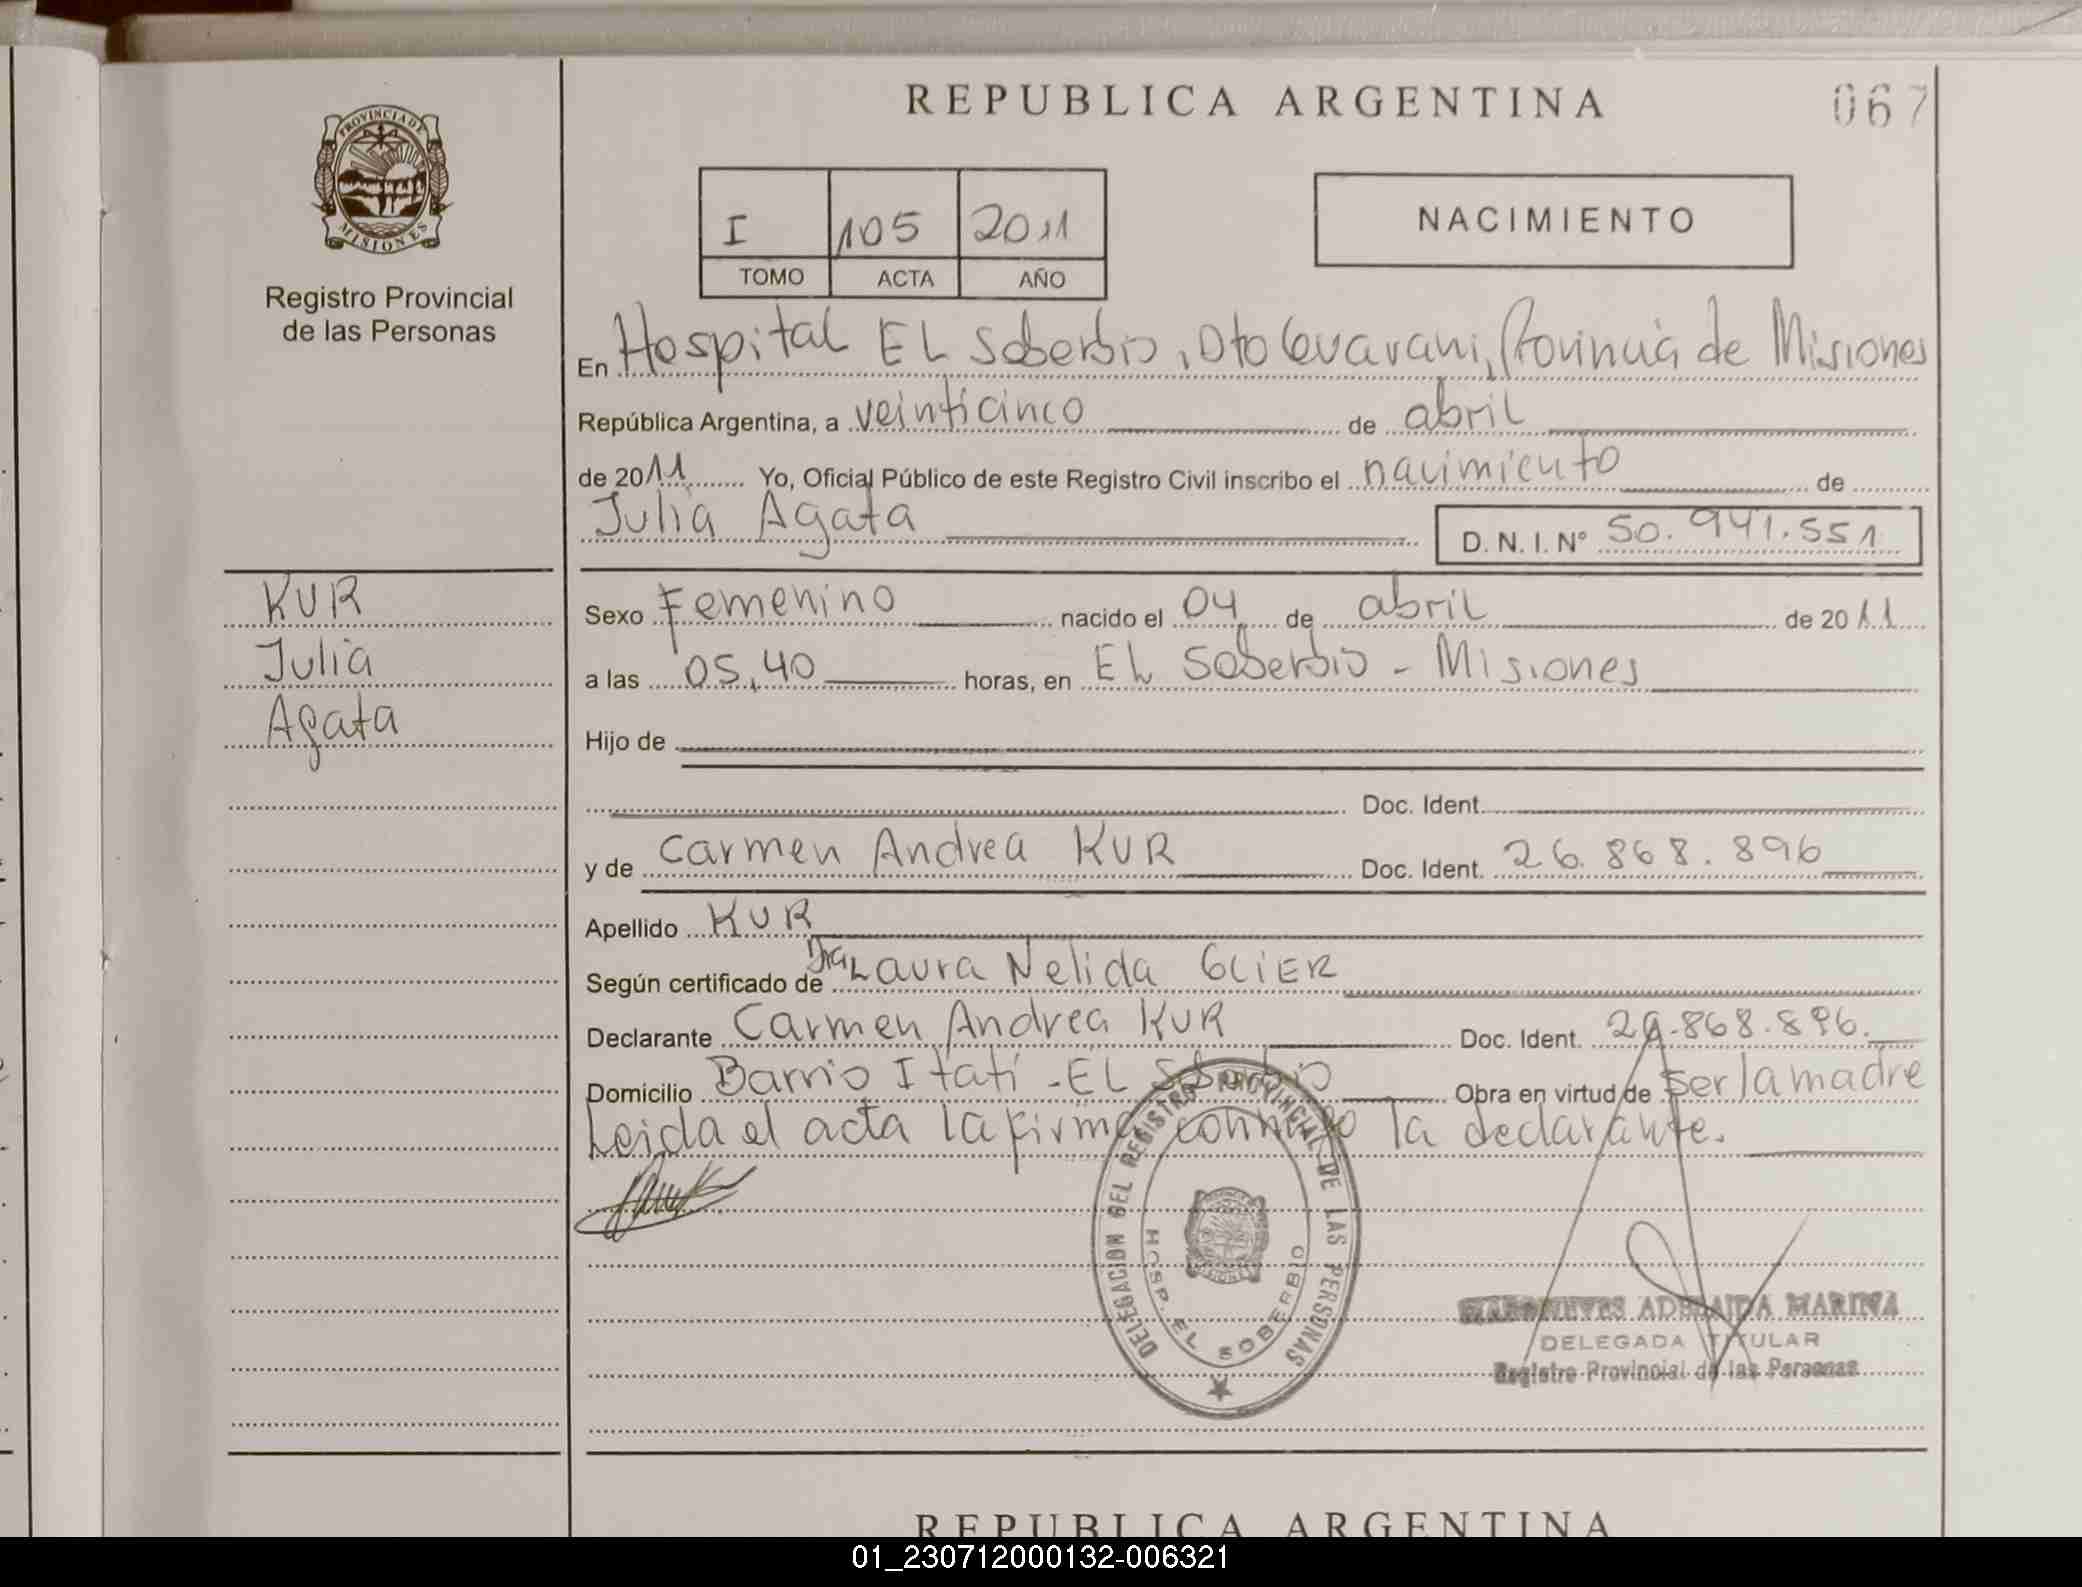 REPUBLICA ARGENTINA
067
PROVINCIA DE
MISIONES
Registro Provincial
de las Personas
I 105 2011
TOMO ACTA AÑO
NACIMIENTO
En Hospital EL Soberbio, Dto Guarani, Provincia de Misiones
República Argentina, a veinticinco de abril
de 2011 Yo, Oficial Público de este Registro Civil inscribo el nacimiento de
Julia Agata D. N. I. N° 50.941.551
KUR
Julia
Agata
Sexo Femenino nacido el 04 de abril de 2011
a las 05,40 horas, en EL Soberbio - Misiones
Hijo de
Doc. Ident.
y de Carmen Andrea KUR Doc. Ident. 26.868.896
Apellido KUR
Según certificado de Dra Laura Nelida GLIER
Declarante Carmen Andrea KUR Doc. Ident. 26.868.896.
Domicilio Barrio Itatí - EL Soberbio Obra en virtud de ser la madre
Leida el acta la firma conmigo la declarante.
DELEGACION DEL REGISTRO PROVINCIAL DE LAS PERSONAS
HOSP. EL SOBERBIO
ADELAIDA MARINA
DELEGADA TITULAR
Registro Provincial de las Personas
REPUBLICA ARGENTINA
01_230712000132-006321